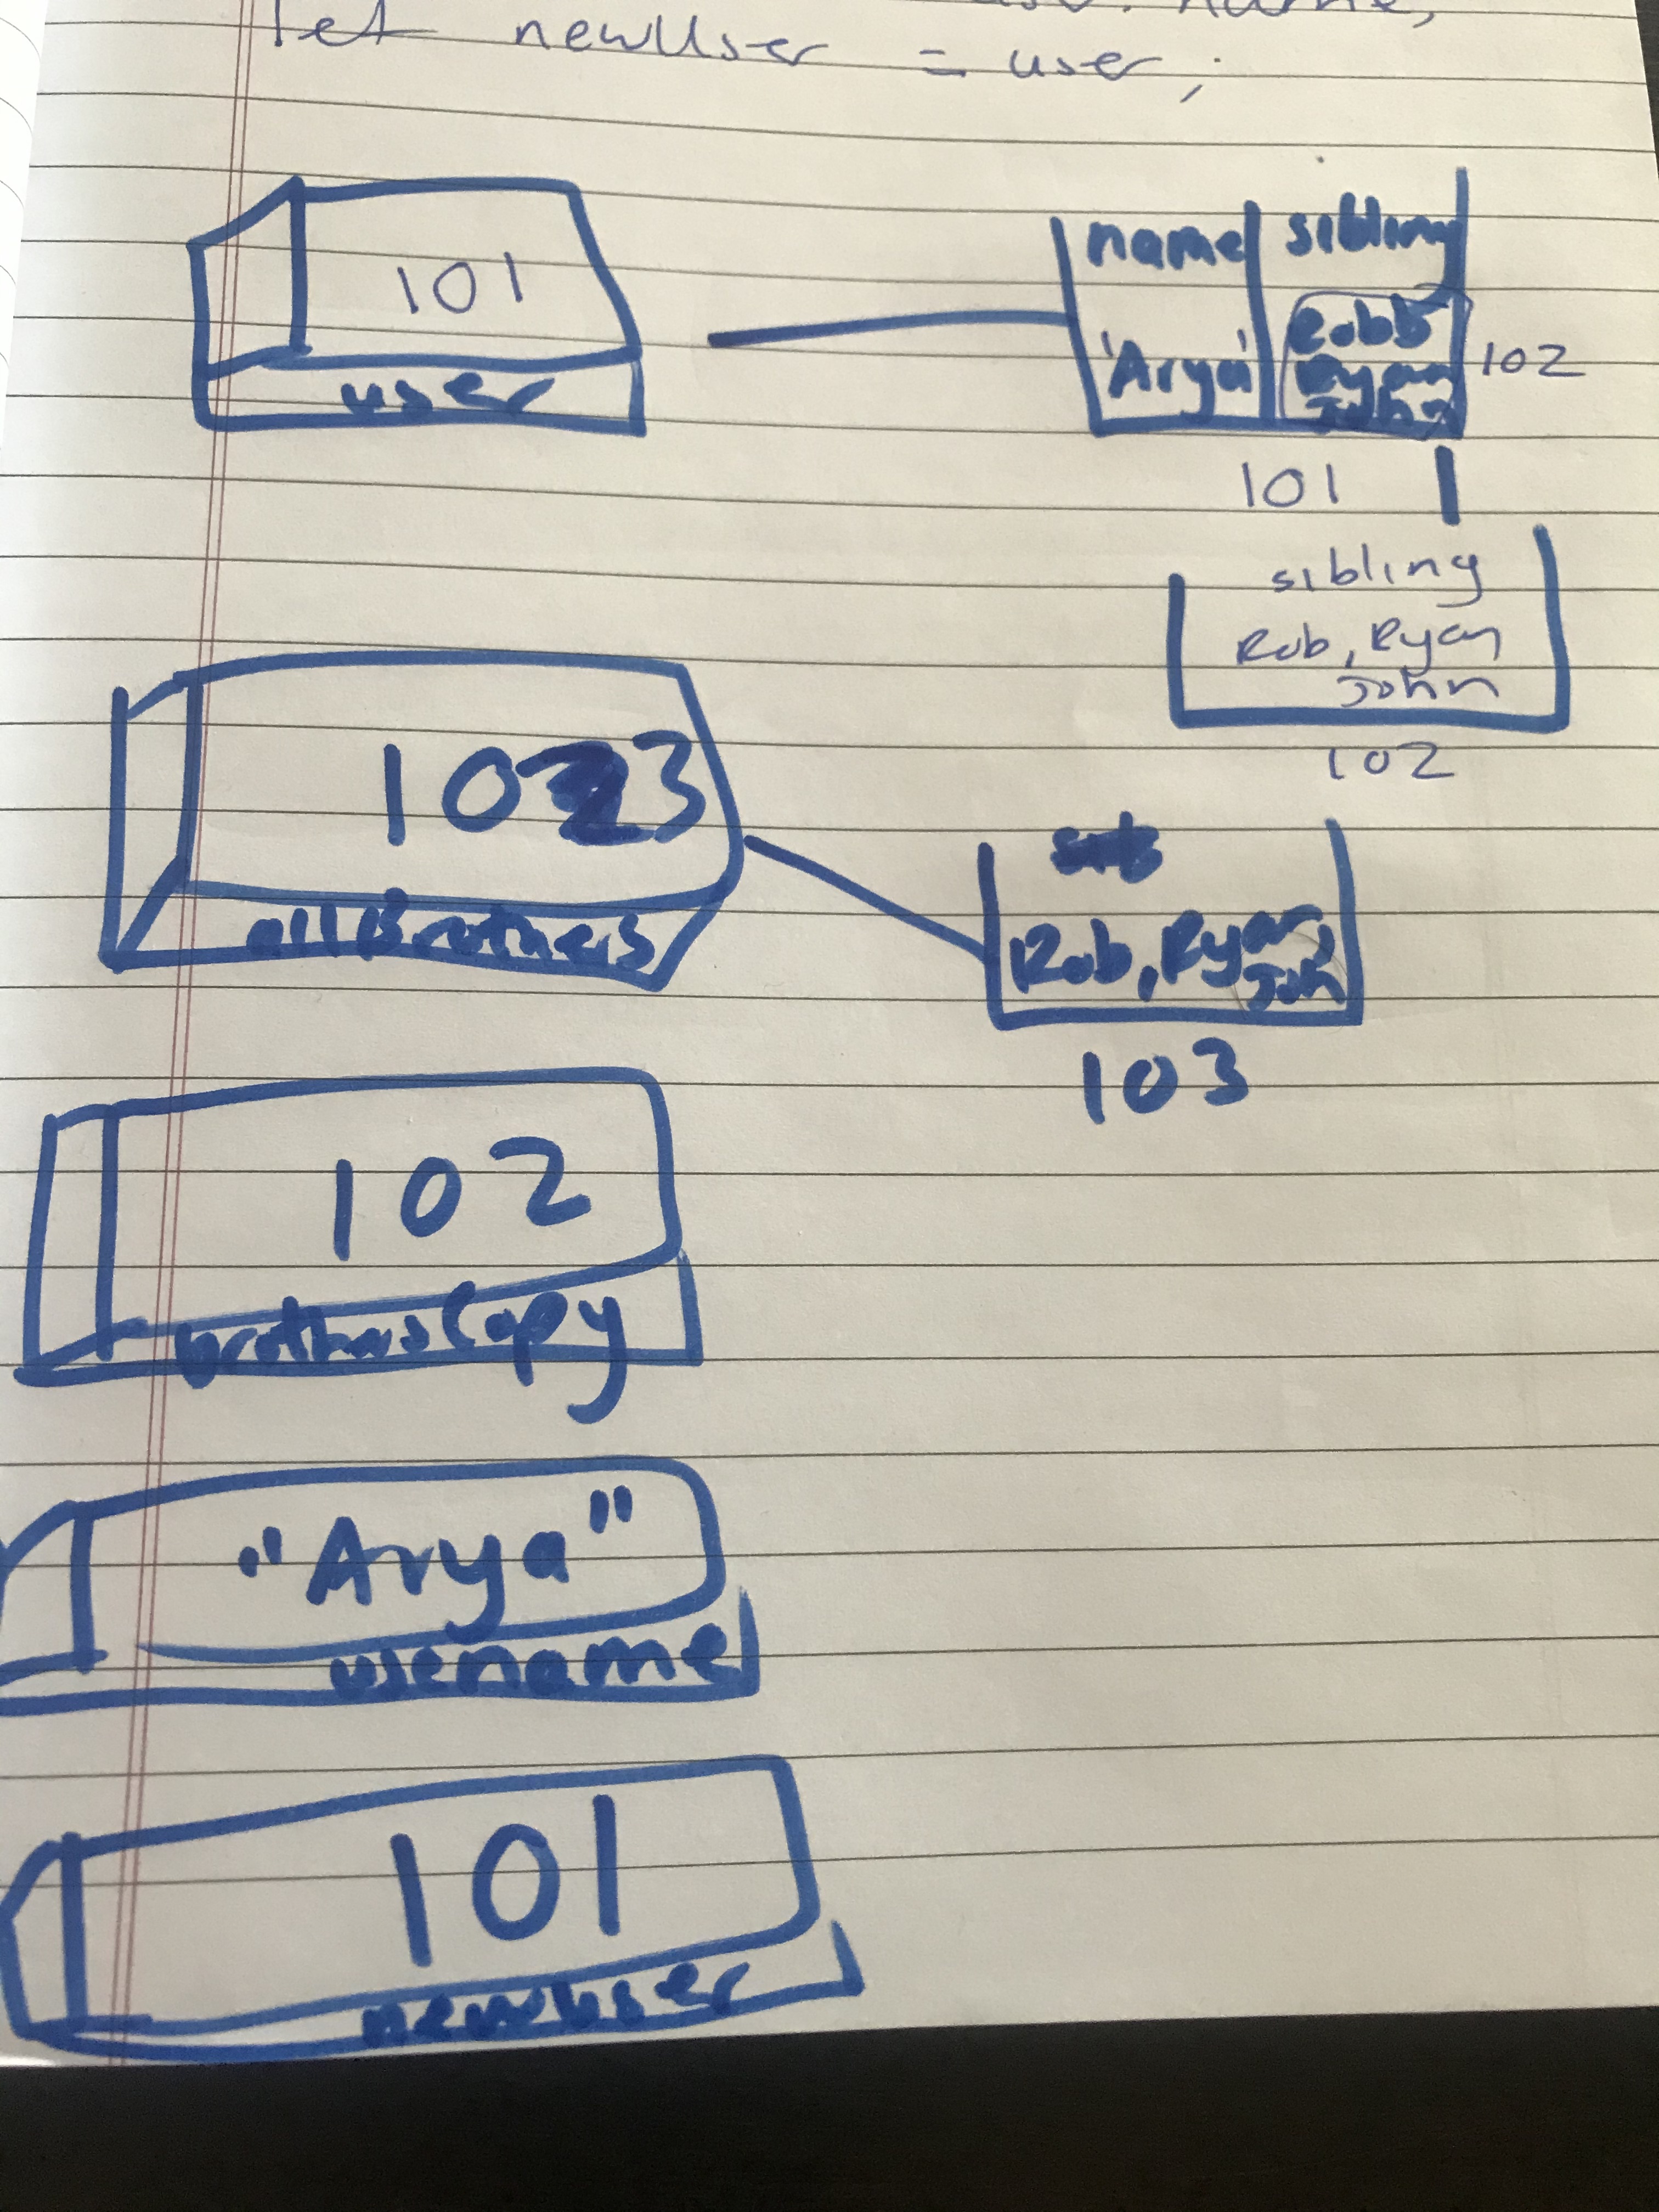 name,
let newUser = user;
name sibling
101
Robb
'Arya' Ryan 102
John
user
101
sibling
Rob, Ryan
John
102
103
allBrothers
Rob, Ryan,
Joh
103
102
brothersCopy
"Arya"
usename
101
newuser